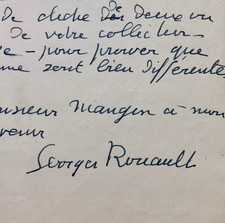 De cliché des deux ou
De votre collection
e - pour prouver que
me sont bien différente
nsieur Mangin à mon
venir
Georges Rouault